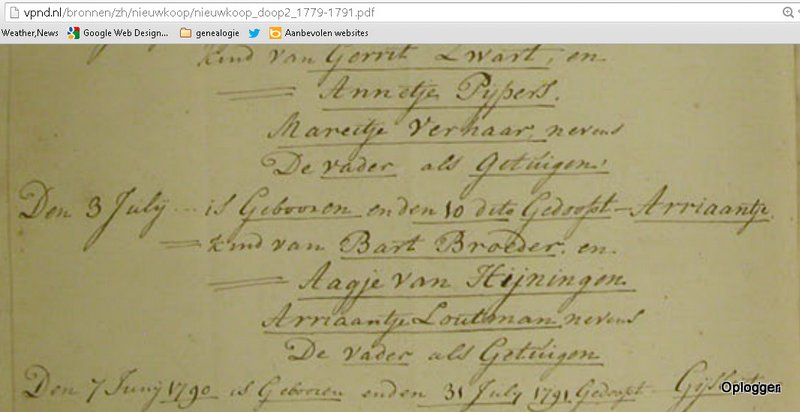 vpnd.nl/bronnen/zh/nieuwkoop/nieuwkoop_doop2_1779-1791.pdf
Weather,News Google Web Design... genealogie Aanbevolen websites
kind van Gerrit Swart, en
Annetje Pijpers.
Mareitje Verhaar nevens
De vader als Getuigen.
Den 3 July is Gebooren enden 10 dito Gedoopt - Arriaantje.
kind van Bart Broeder. en.
Aagje van Hijningen.
Arriaantje Loutman nevens
De vader als Getuigen
Den 7 Junij 1790 is Gebooren enden 31 July 1791 Gedoopt
Oplogger